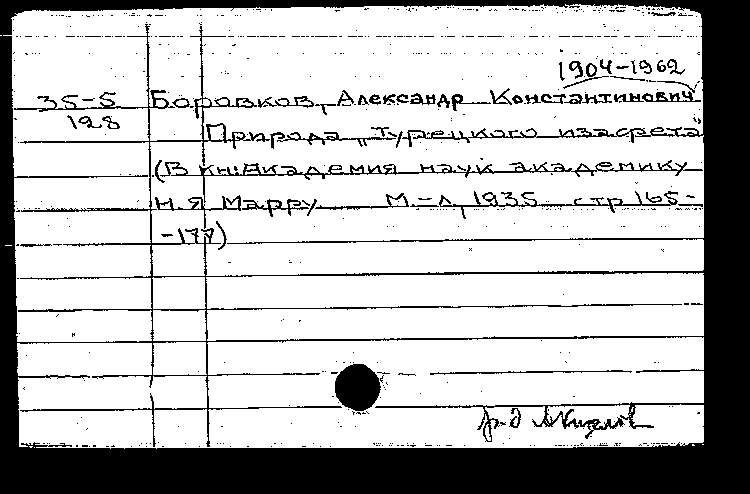 1904-1962
35-5 Боровков, Александр Константинович
128 Природа „Турецкого изафрета"
(В кн: Академия наук академику
Н. Я Марру М.-Л, 1935 стр 165-
-177)